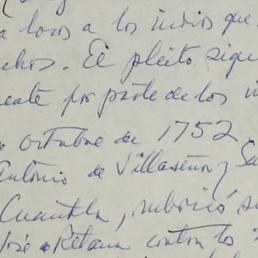 a locos a los indios que
chos. El pleito sigu
ente por parte de los i
octubre de 1752
Antonio de Villaseñor y Sa
Cuautla, rubricó su
José Retana contra lo